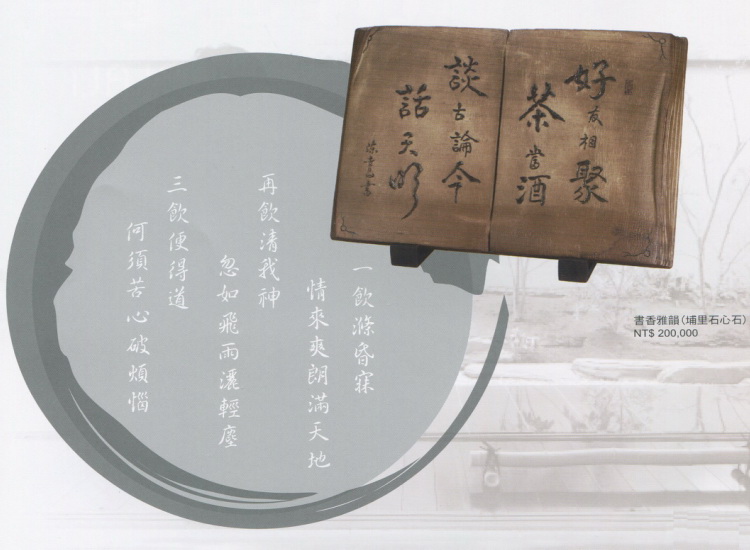 好友相聚
茶當酒
談古論今
話天明
一飲滌昏寐
情來爽朗滿天地
再飲清我神
忽如飛雨灑輕塵
三飲便得道
何須苦心破煩惱
書香雅韻(埔里石心石)
NT$ 200,000